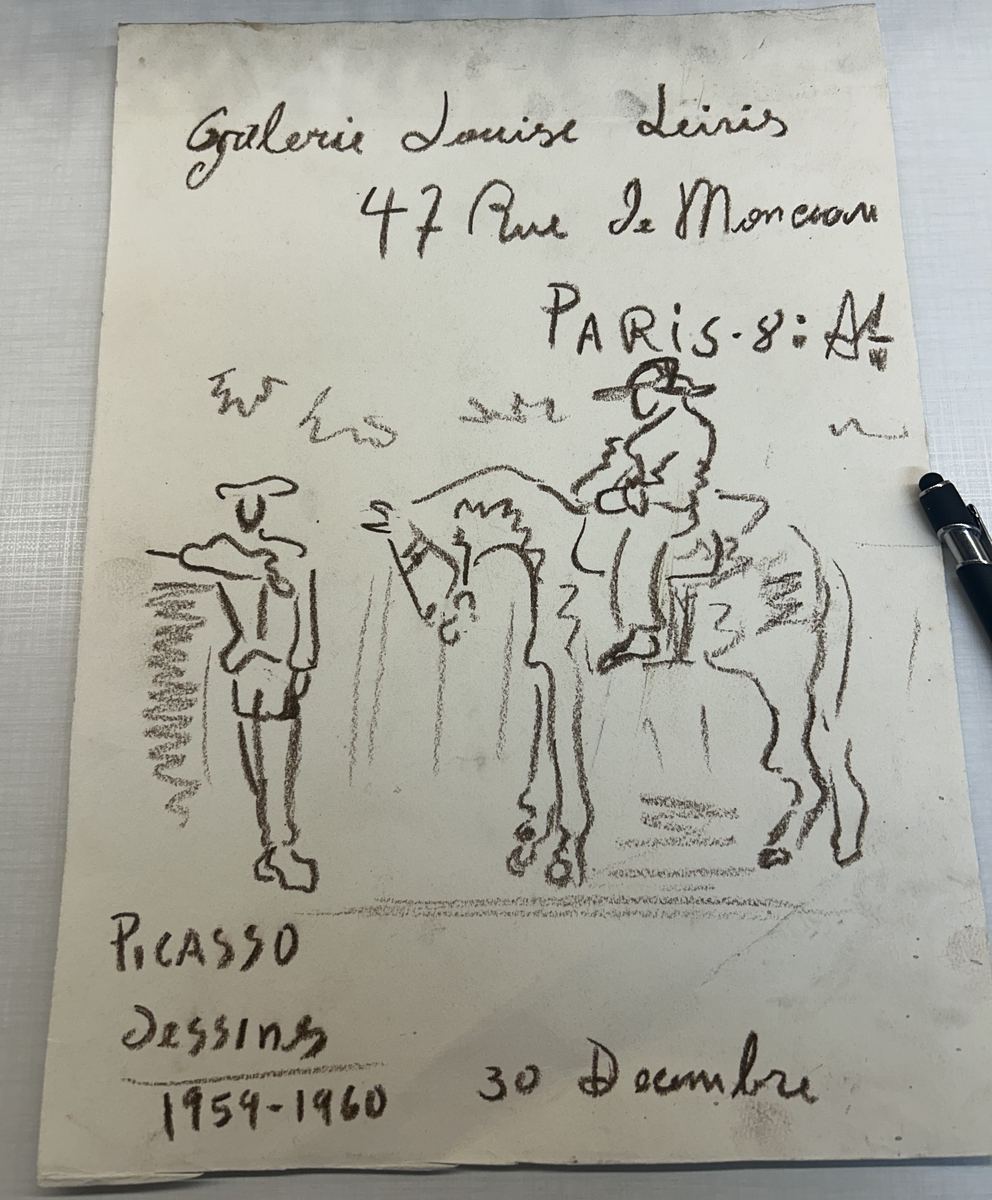 Galerie Louise Leiris
47 Rue de Monceau
PARiS-8:
PiCASSO
Dessins
1959-1960
30 Decembre